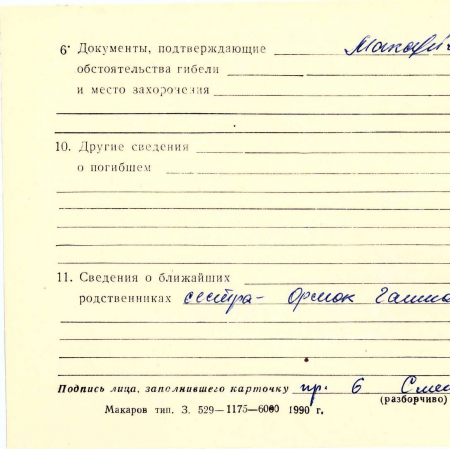 6· Документы, подтверждающие
обстоятельства гибели
и место захоронения
10. Другие сведения
о погибшем
11. Сведения о ближайших
родственниках сестра - Ормок
Подпись лица, заполнившего карточку пр. 6
(разборчиво)
Макаров тип. З. 529—1175—6000 1990 г.